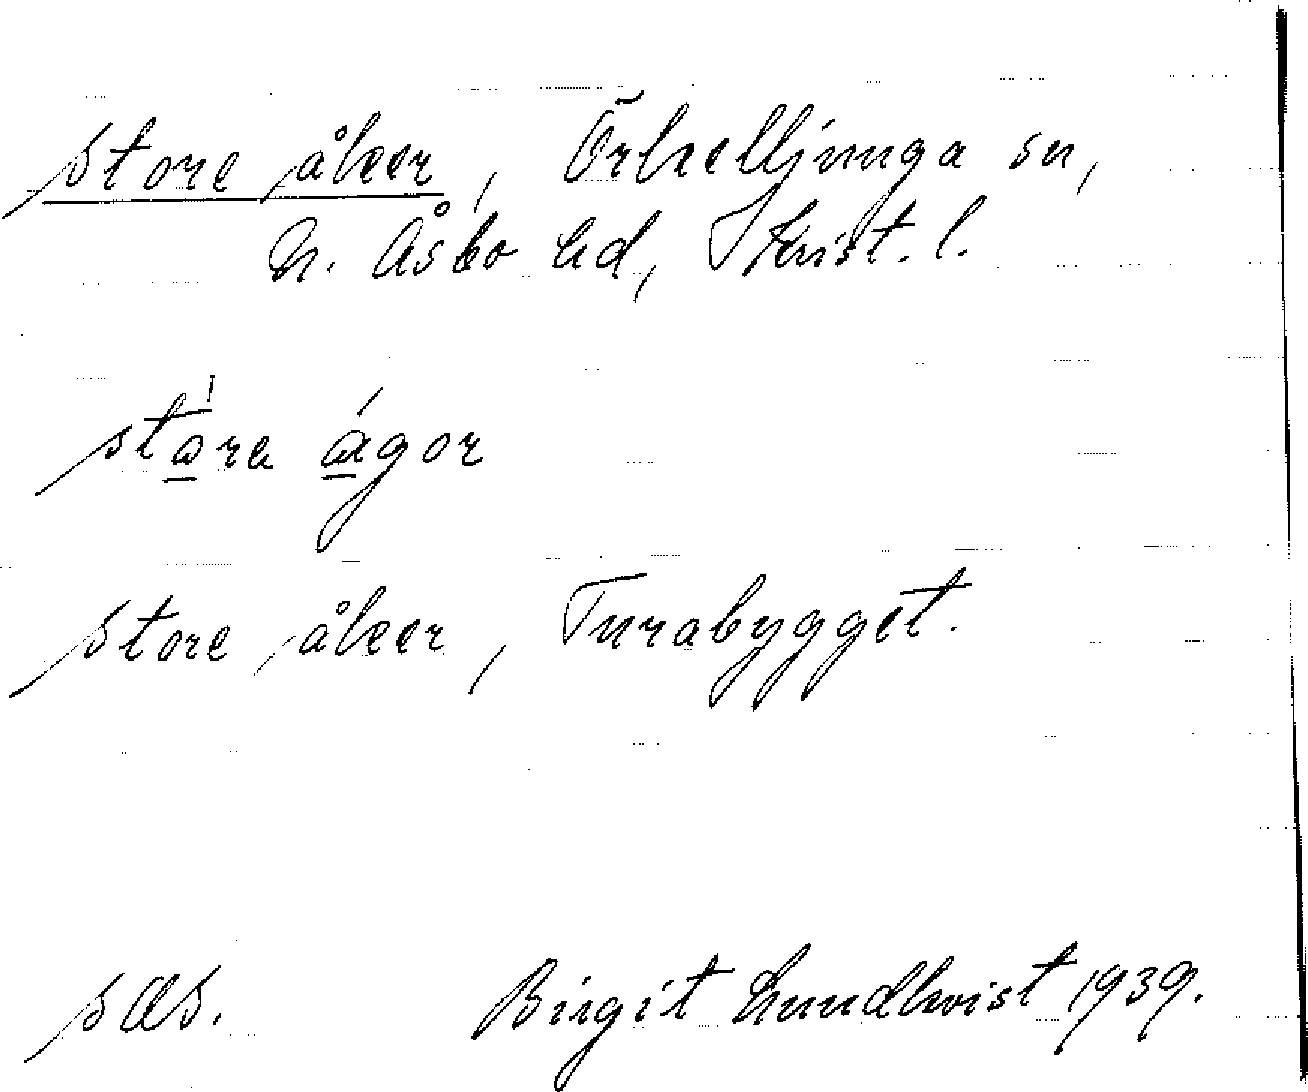 store åker, Örkelljunga sn,
N. Åsbo hd, Krist. l.
stora ágor
store åker, Turabygget.
sas. Birgit Lundkvist 1939.